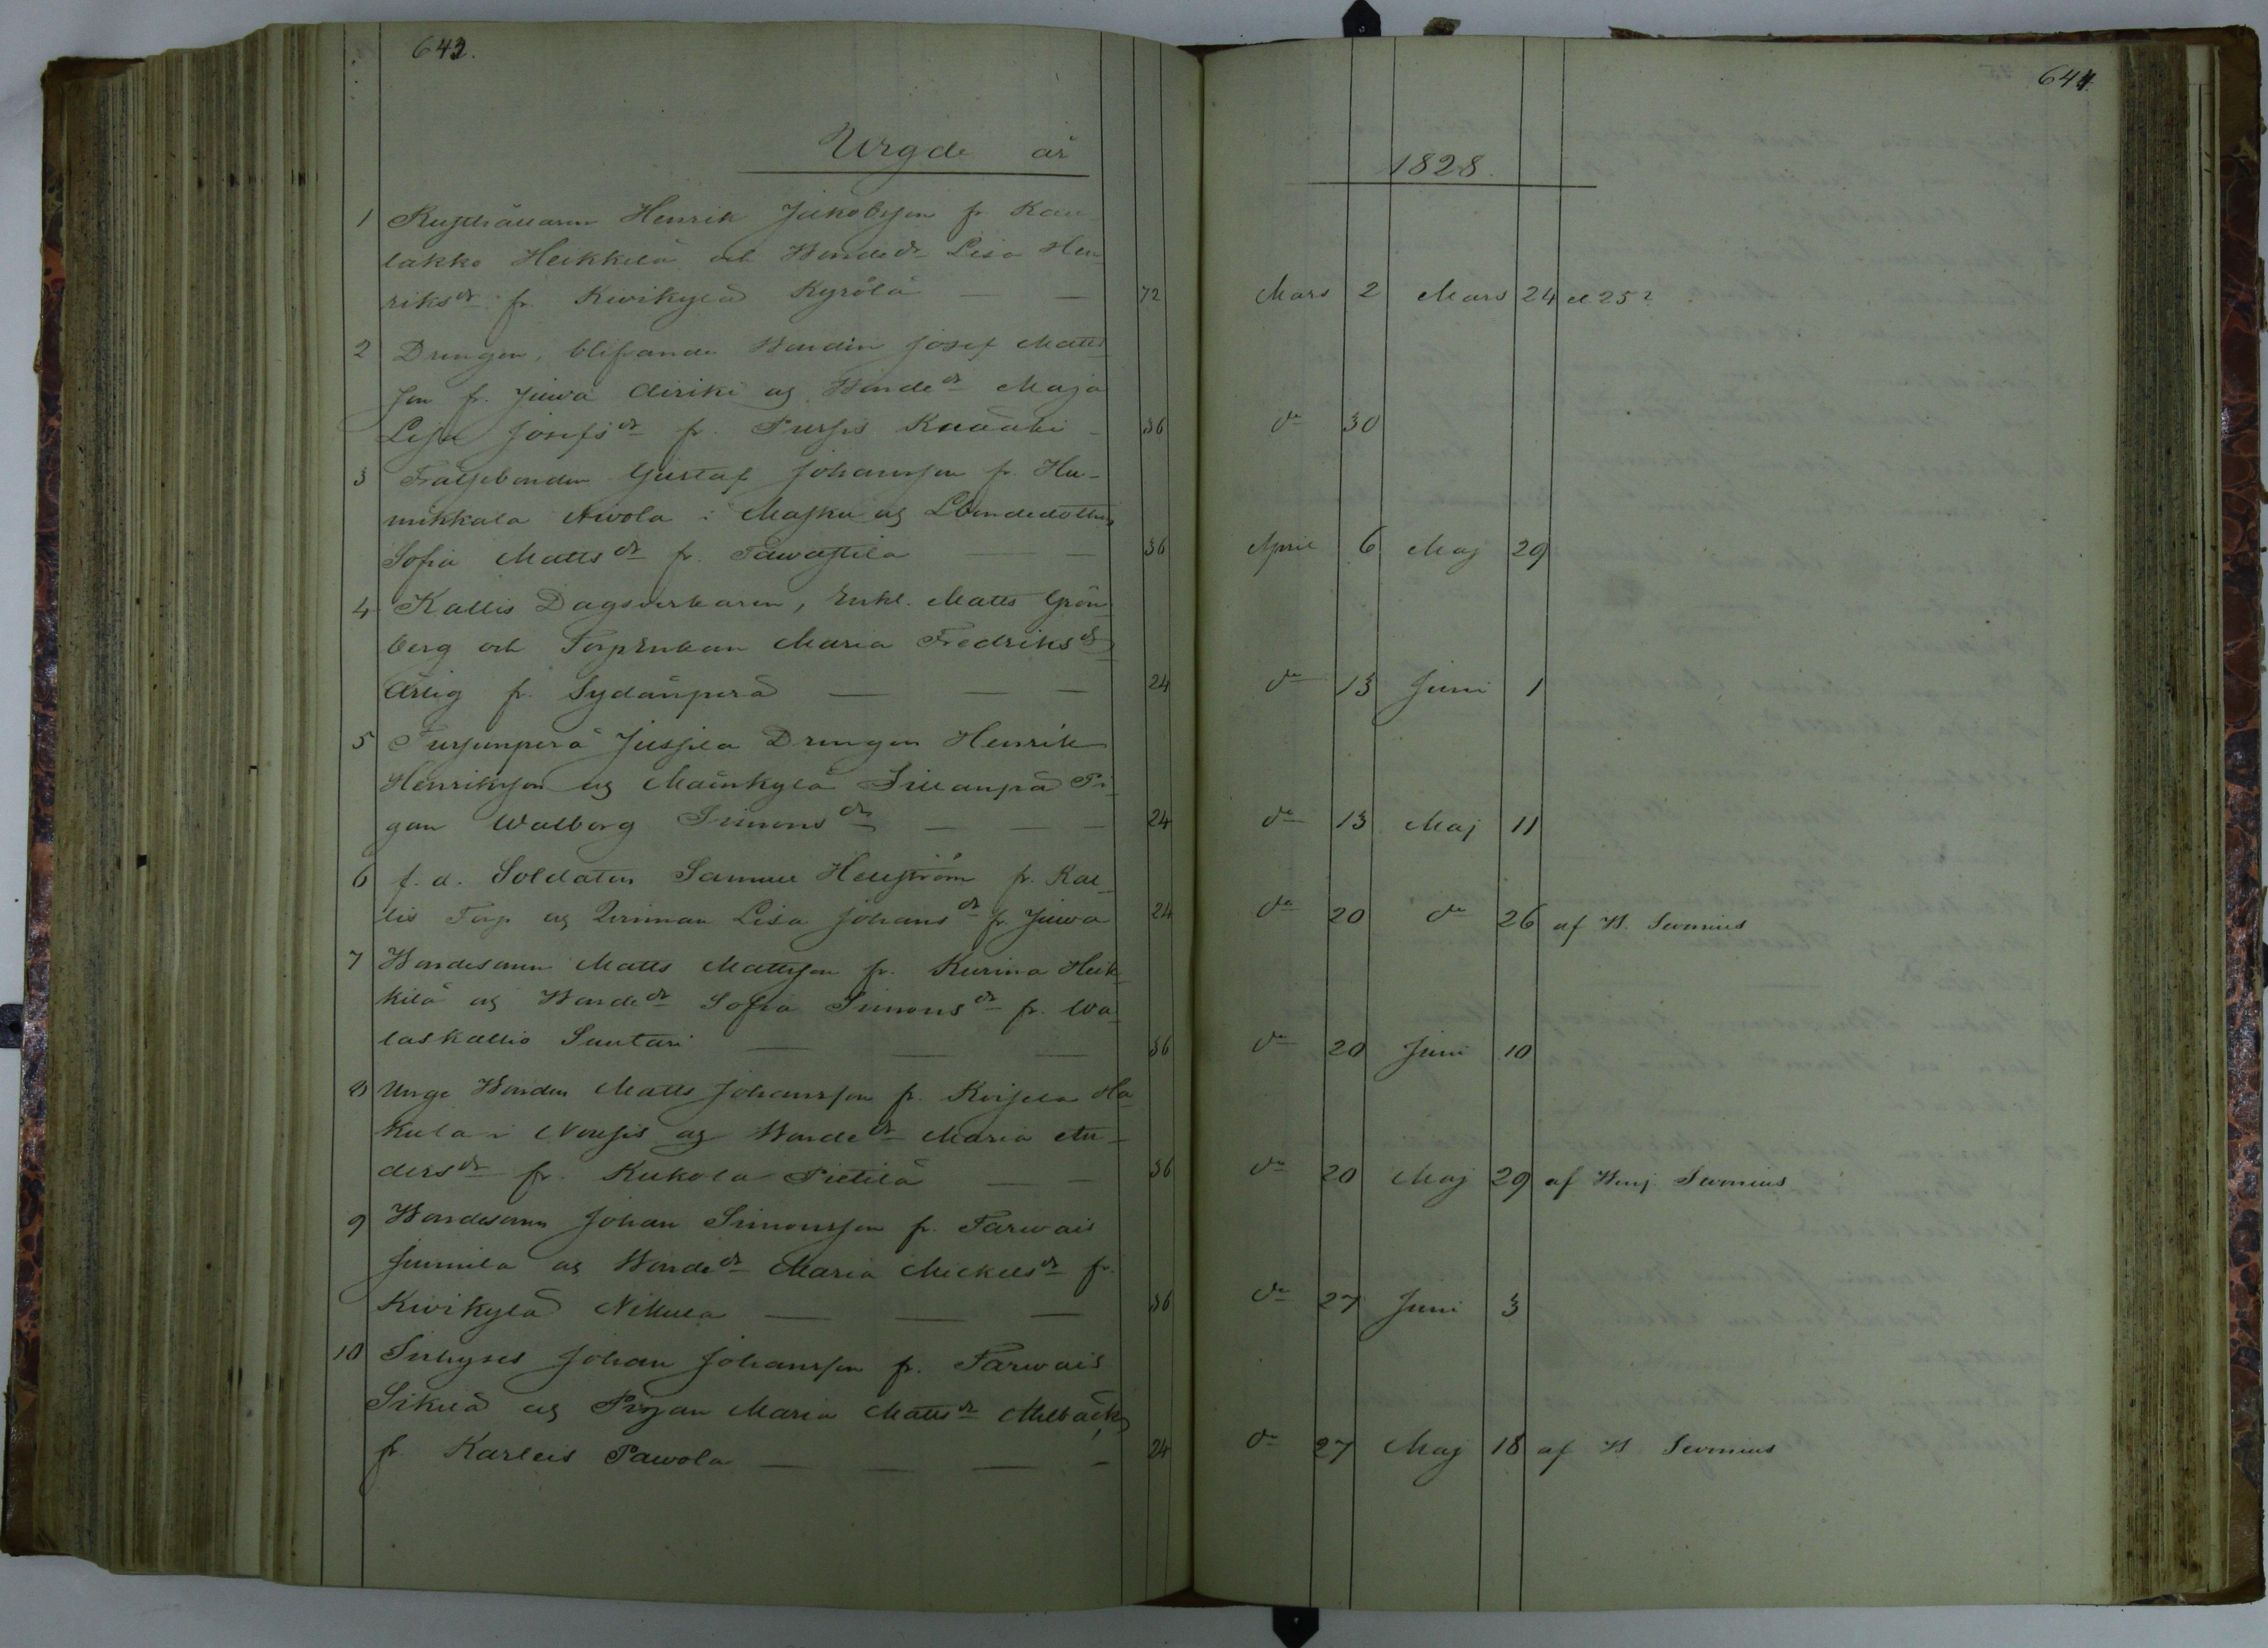 643.
Wigde år
1 Rusthållaren Henrik Jakobsson fr. Kau-
lakko Heikkilä och Bondedr Lisa Hen-
riksdr fr. Kivikylä Kyrölä — — 72
2 Drengen, blifvande Bonden Josef Matts
son fr. Juva Äiriki og Bondedr Maja
Lisa Josefsdr fr. Pursis - 36
3 Frälsebonden Gustaf Johansson fr. Hu-
mikkala i Masku og Bondedottren
Sofia Mattsdr fr. Tawastila — — 36
4 Kallis Dagsverkaren, Enkl. Matts Grön
berg och Torpenkan Maria Fredriksdr
Ärlig fr. Sydänperä — — — 24
5 Tursunperä Jussila Drengen Henrik
Henriksson og Mäenkylä Sillanpä Pi-
gan Walborg Simonsdr — — — 24
6 f.d. Soldaten Samuel Hellström fr. Kal-
lis Torp og Qvinnan Lisa Johansdr fr. Juva 24
7 Bondesonen Matts Mattsson fr. Kurina Heik-
kilä og Bondedr Sofia Simonsdr fr. Wa-
laskallio Santari — — — 36
8 Unge Bonden Matts Johansson fr. Koisela Ha-
kula i Nousis og Bondedr Maria An-
dersdr fr. Kukola Pietilä — — 36
9 Bondesonen Johan Simonsson fr. Tarvais
Jumila og Bondedr Maria Mickelsdr fr.
Kivikylä Nikula — — — 36
10 Inhyses Johan Johansson fr. Tarvais
Sikilä og Pigan Maria Mattsdr Ahlbäck,
fr. Karleis Pawola — — — — 24
644.
1828.
Mars 2 Mars 24 el 25?
do 30
April 6 Maj 29
do 13 Juni 1
do 13 Maj 11
do 20 do 26 af B. Sevonius
do 20 Juni 10
do 20 Maj 29 af Benj. Sevonius
do 27 Juni 3
do 27 Maj 18 af B Sevonius